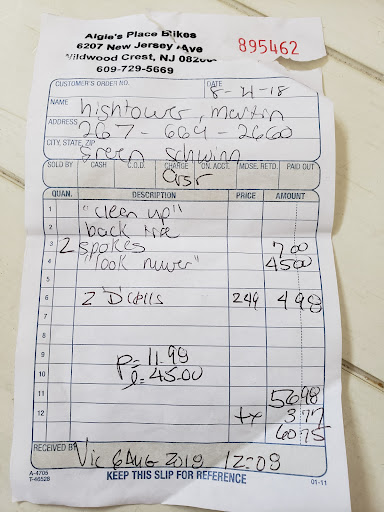 Algie's Place Bikes
6207 New Jersey Ave
895462
Wildwood Crest, NJ 0826
609-729-5669
CUSTOMER'S ORDER NO. DATE
8-4-18
NAME hightower, martin
ADDRESS 267-664-2660
CITY, STATE, ZIP green schwinn
SOLD BY CASH C.O.D. CHARGE ON. ACCT. MDSE. RETD. PAID OUT
QUAN. DESCRIPTION PRICE AMOUNT
1 "clean up"
2 back tire
3 2 spokes 7 00
4 "look newer" 45 00
5
6 2 D cells 249 4 98
7
8
9 P= 11.98
10 l= 45.00
11 56 98
12 tx 3 77
60 75
RECEIVED BY Vic 6 Aug 2018 12:09
A-4705
T-46528 KEEP THIS SLIP FOR REFERENCE 01-11